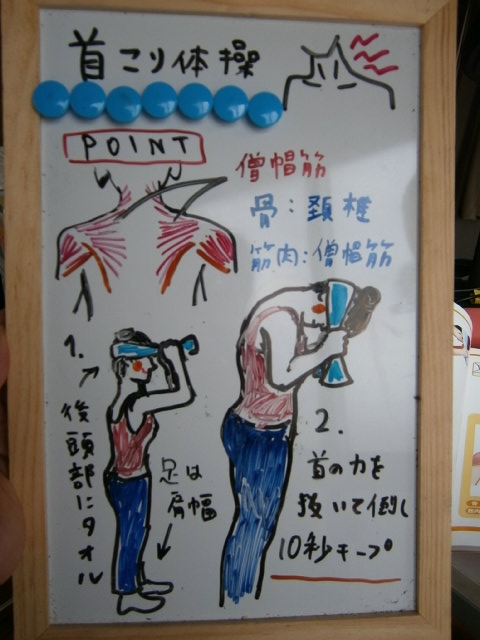 首こり体操
POINT
僧帽筋
骨：頚椎
筋肉：僧帽筋
1.
後頭部にタオル
足は
肩幅
2.
首の力を
抜いて倒し
10秒キープ